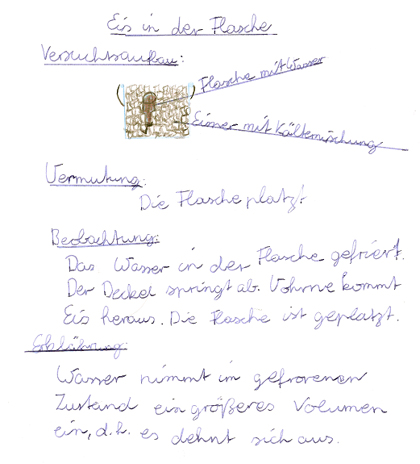 Eis in der Flasche
Versuchsaufbau:
Flasche mit Wasser
Eimer mit Kältemischung
Vermutung:
Die Flasche platzt.
Beobachtung:
Das Wasser in der Flasche gefriert.
Der Deckel springt ab. Vohrne kommt
Eis heraus. Die Flasche ist geplatzt.
Erklährung:
Wasser nimmt im gefrorenen
Zustand ein größeres Volumen
ein, d.h. es dehnt sich aus.